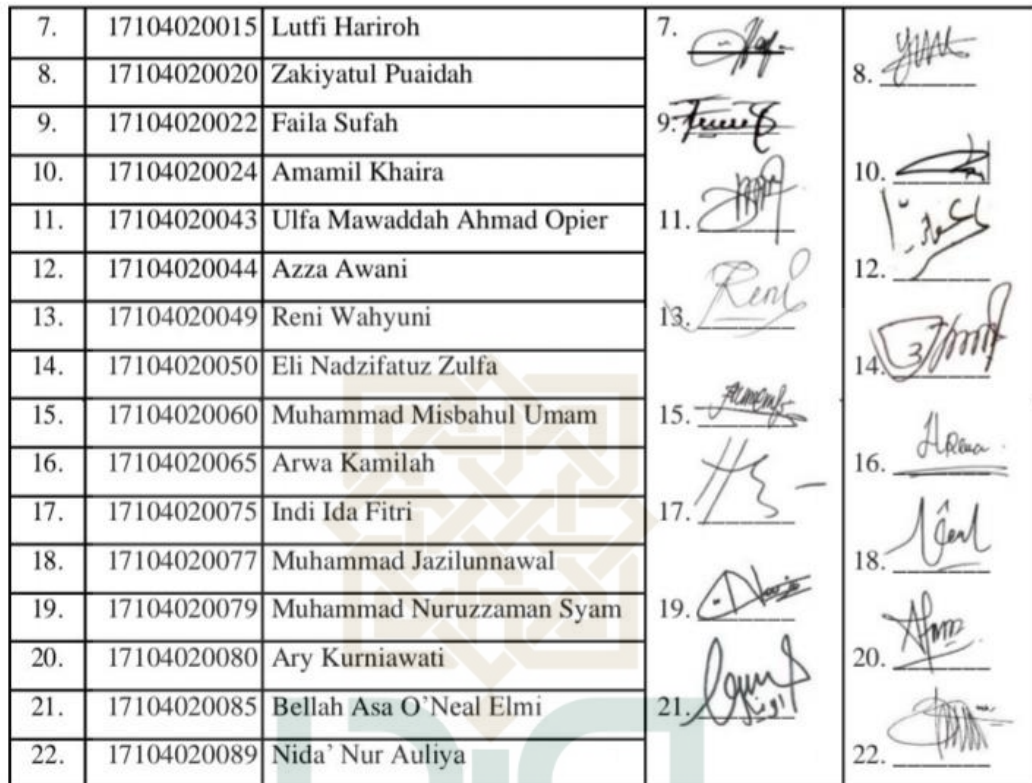 7. 17104020015 Lutfi Hariroh 7.
8. 17104020020 Zakiyatul Puaidah 8.
9. 17104020022 Faila Sufah 9.
10. 17104020024 Amamil Khaira 10.
11. 17104020043 Ulfa Mawaddah Ahmad Opier 11.
12. 17104020044 Azza Awani 12.
13. 17104020049 Reni Wahyuni 13. Reni
14. 17104020050 Eli Nadzifatuz Zulfa 14.
15. 17104020060 Muhammad Misbahul Umam 15.
16. 17104020065 Arwa Kamilah 16.
17. 17104020075 Indi Ida Fitri 17.
18. 17104020077 Muhammad Jazilunnawal 18.
19. 17104020079 Muhammad Nuruzzaman Syam 19.
20. 17104020080 Ary Kurniawati 20.
21. 17104020085 Bellah Asa O’Neal Elmi 21.
22. 17104020089 Nida’ Nur Auliya 22.